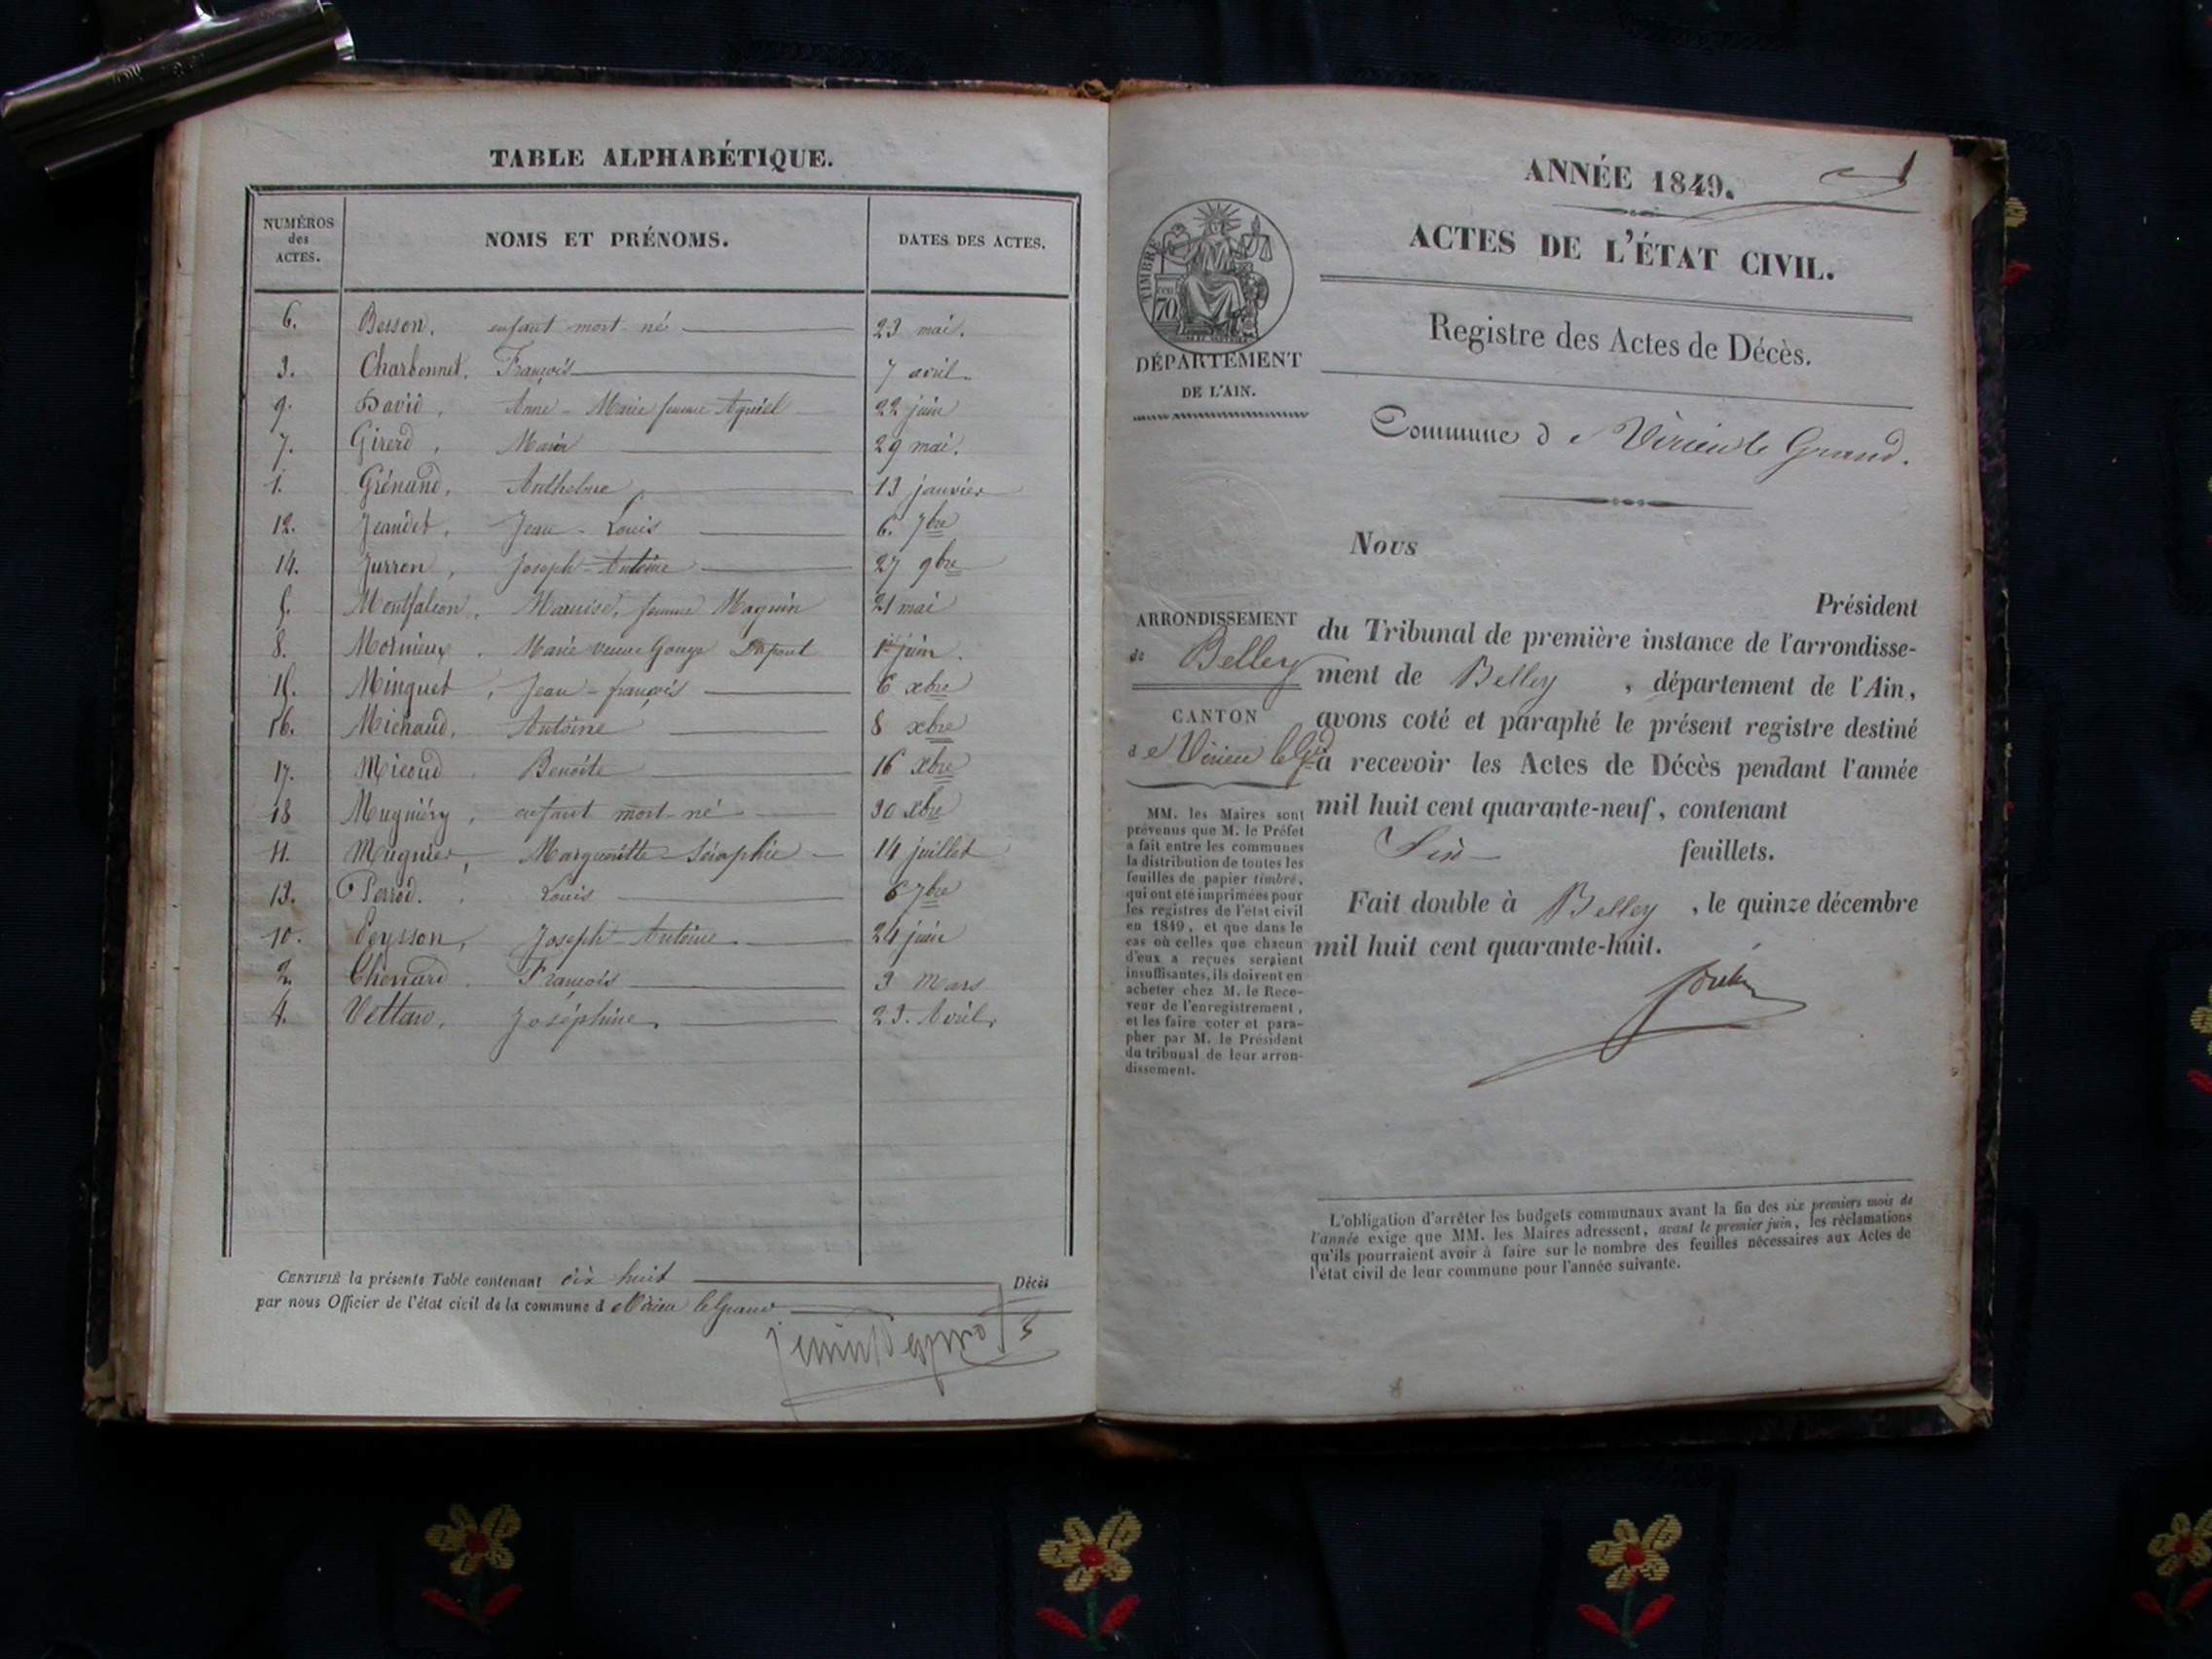 TABLE ALPHABÉTIQUE.
NUMÉROS des ACTES. NOMS ET PRÉNOMS. DATES DES ACTES.
6. Besson, enfant mort-né 23 mai.
3. Charbonnet, François 7 avril.
9. David, Anne-Marie femme 22 juin
7. Girerd, Marie 29 mai.
1. Grénand, Anthelme 13 janvier
12. Jeandet, Jean-Louis 6. 7bre
14. Jurron, Joseph-Antoine 27 9bre
5. Montfalcon, femme Maguin 21 mai
8. Mornieux, Marie veuve Dupont 1er juin.
15. Minguet, Jean-françois 6 xbre
16. Michaud, Antoine 8 xbre
17. Micoud, Benoite 16 xbre
18 Mugniéry, enfant mort-né 30 xbre
11. Mugnier, Margueritte-Séraphie 14 juillet
13. Perrod. Louis 6 7bre
10. Peysson, Joseph-Antoine. 24 juin
2. Chenard. François 3 Mars
4. Vettard, Joséphine. 23. Avril.
CERTIFIÉ la présente Table contenant dix huit Décès
par nous Officier de l'état civil de la commune d e Virieu le Grand
ANNÉE 1849.
ACTES DE L'ÉTAT CIVIL.
Registre des Actes de Décès.
TIMBRE
70
DÉPARTEMENT
DE L'AIN.
Commune d e Virieu le Grand.
Nous
Président
du Tribunal de première instance de l'arrondisse-
ment de Belley, département de l'Ain,
avons coté et paraphé le présent registre destiné
à recevoir les Actes de Décès pendant l'année
mil huit cent quarante-neuf, contenant
Six feuillets.
Fait double à Belley, le quinze décembre
mil huit cent quarante-huit.
ARRONDISSEMENT
de Belley
CANTON
d e Virieu le Gd
MM. les Maires sont
prévenus que M. le Préfet
a fait entre les communes
la distribution de toutes les
feuilles de papier timbré,
qui ont été imprimées pour
les registres de l'état civil
en 1849, et que dans le
cas où celles que chacun
d'eux a reçues seraient
insuffisantes, ils doivent en
acheter chez M. le Rece-
veur de l'enregistrement,
et les faire coter et para-
pher par M. le Président
du tribunal de leur arron-
dissement.
L'obligation d'arrêter les budgets communaux avant la fin des six premiers mois de
l'année exige que MM. les Maires adressent, avant le premier juin, les réclamations
qu'ils pourraient avoir à faire sur le nombre des feuilles nécessaires aux Actes de
l'état civil de leur commune pour l'année suivante.